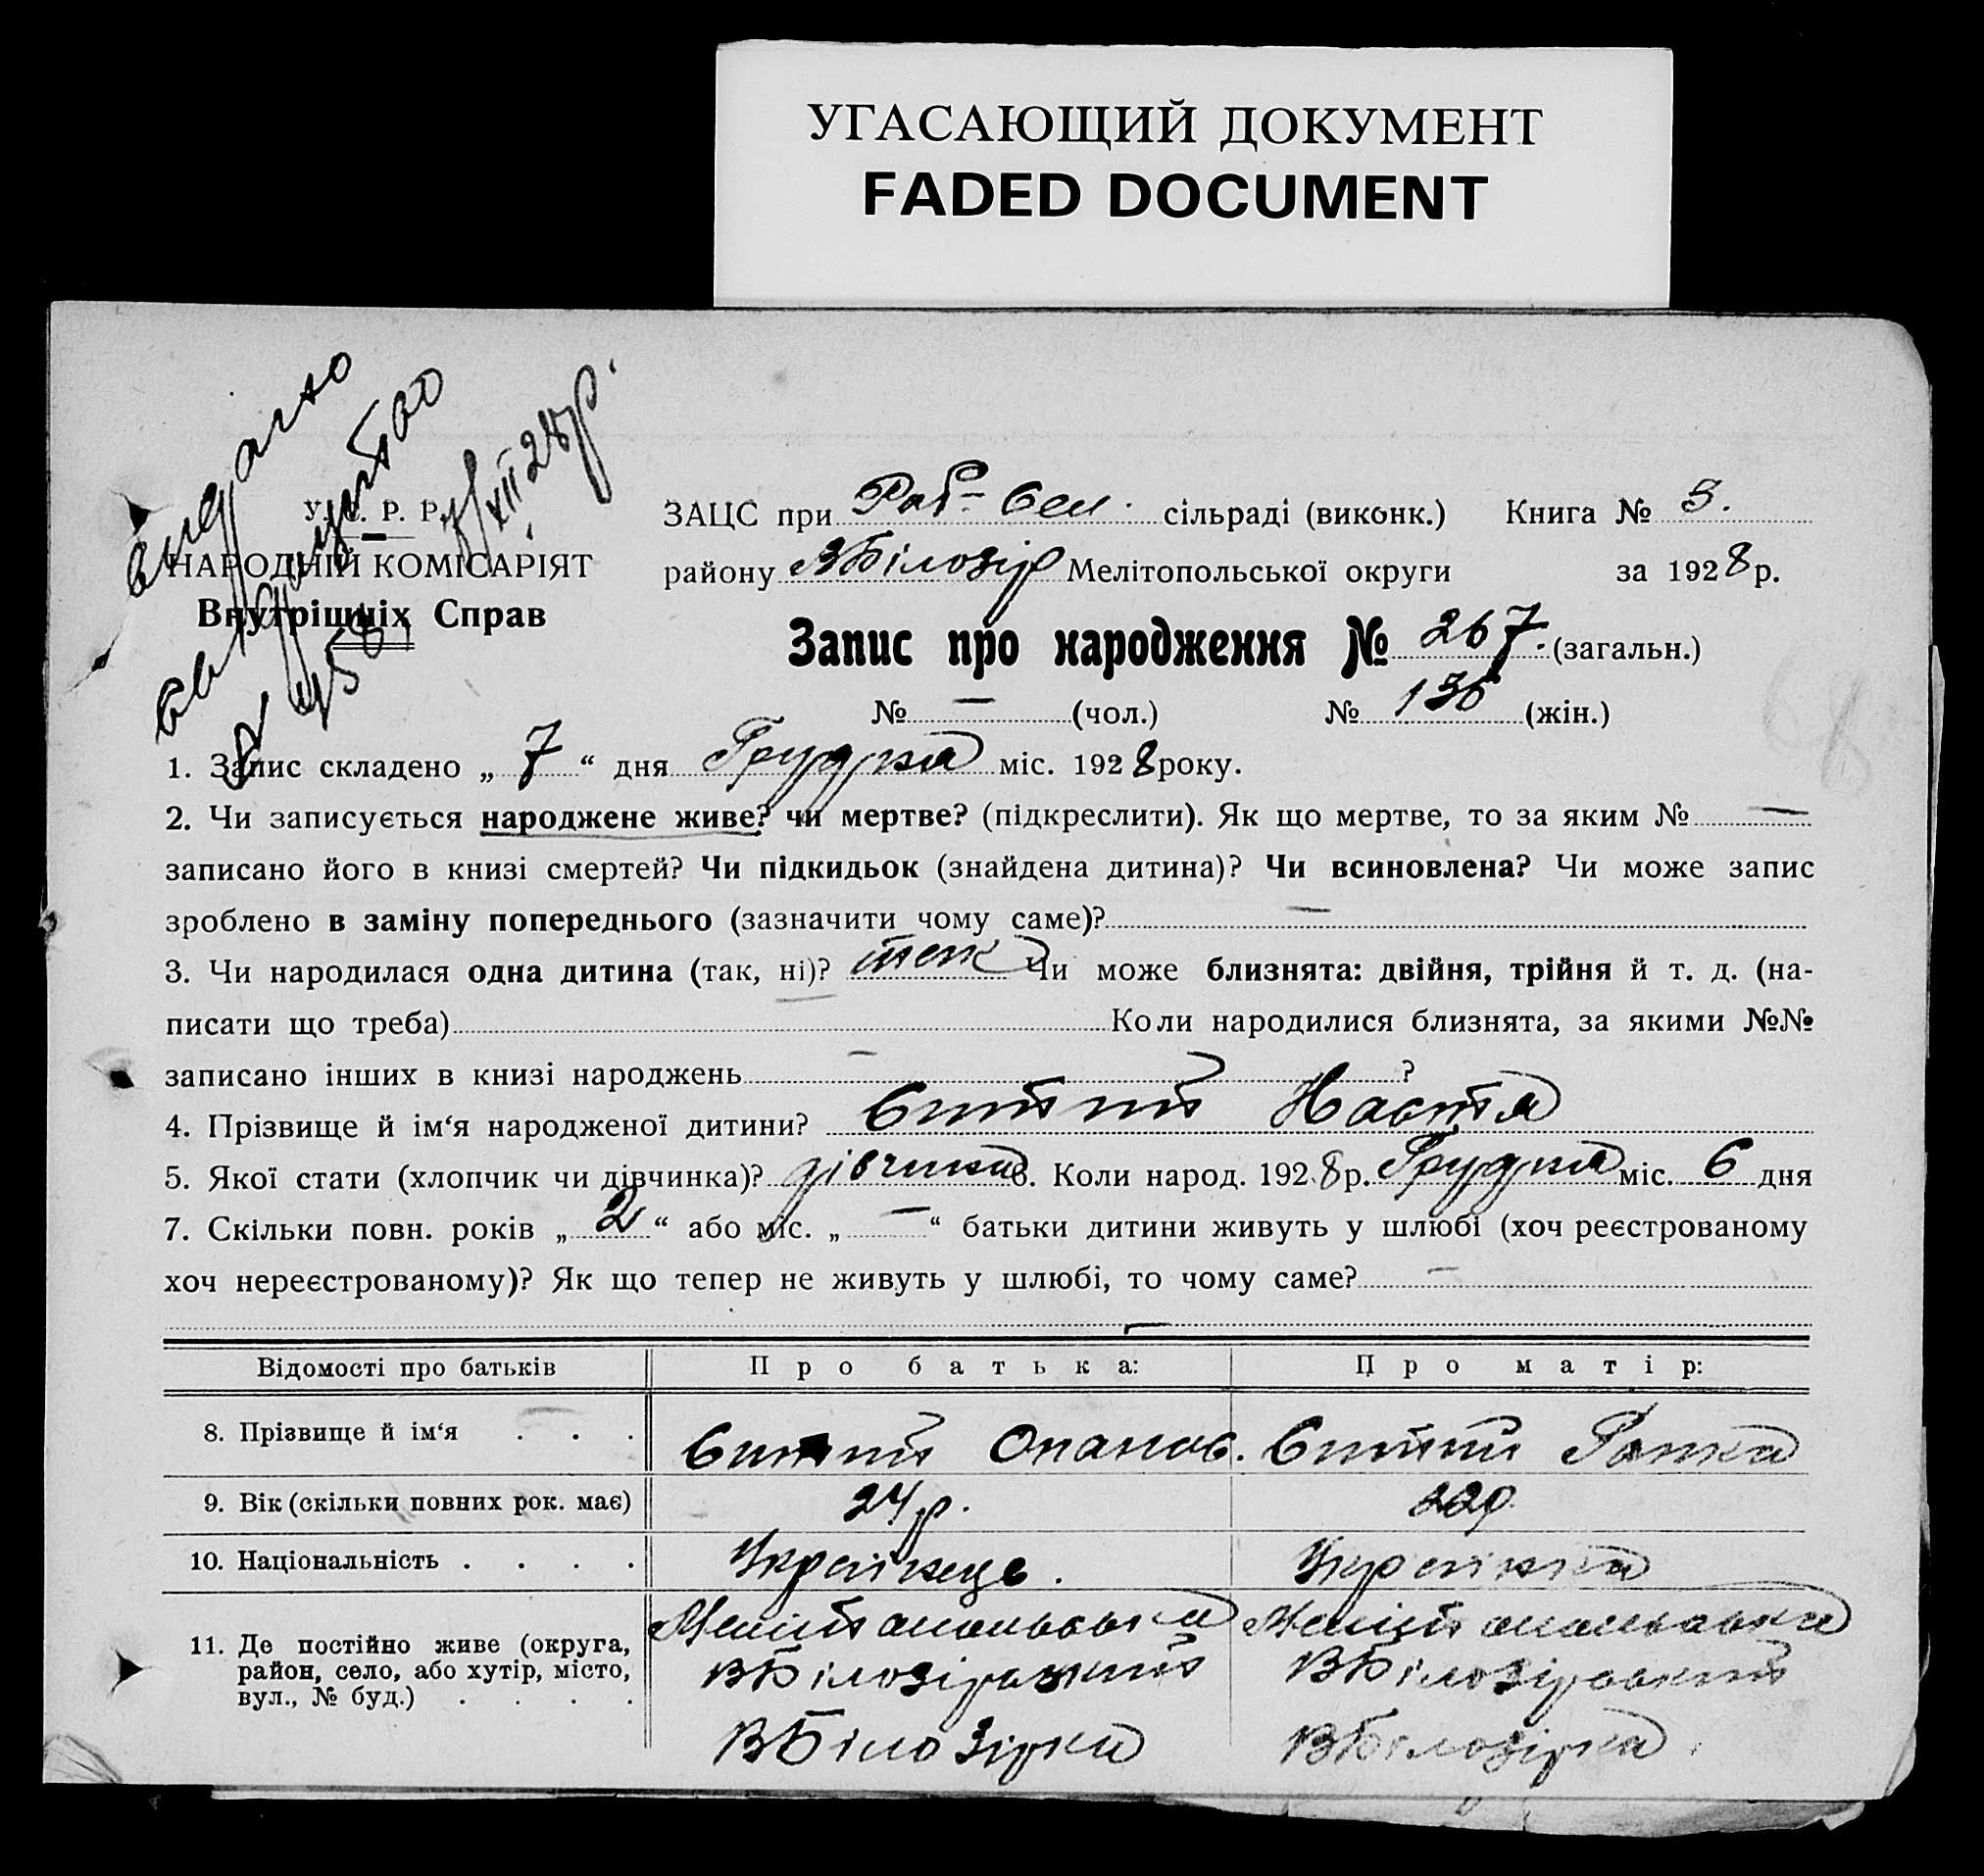 УГАСАЮЩИЙ ДОКУМЕНТ
FADED DOCUMENT
видано
свидоцтво
7/XII 28р.
У. С. Р. Р.
НАРОДНІЙ КОМІСАРІЯТ
Внутрішніх Справ
ЗАЦС при Раб-Сел. сільраді (виконк.) Книга № 3.
району ВБілозір Мелітопольської округи за 1928 р.
Запис про народження № 267. (загальн.)
№ — (чол.) № 136 (жін.)
1. Запис складено „ 7 “ дня Грудня міс. 1928 року.
2. Чи записується народжене живе? чи мертве? (підкреслити). Як що мертве, то за яким № —
записано його в книзі смертей? Чи підкидьок (знайдена дитина)? Чи всиновлена? Чи може запис
зроблено в заміну попереднього (зазначити чому саме)? —
3. Чи народилася одна дитина (так, ні)? так Чи може близнята: двійня, трійня й т. д. (на-
писати що треба) — Коли народилися близнята, за якими №№
записано інших в книзі народжень — ?
4. Прізвище й ім‘я народженої дитини? Настя
5. Якої стати (хлопчик чи дівчинка)? дівчина 6. Коли народ. 1928 р. Грудня міс. 6 дня
7. Скільки повн. років „ 2 “ або міс. „ — “ батьки дитини живуть у шлюбі (хоч реєстрованому
хоч нереєстрованому)? Як що тепер не живуть у шлюбі, то чому саме? —
—
Відомості про батьків Про батька: Про матір:
8. Прізвище й ім‘я . . . Опанас.
9. Вік (скільки повних рок. має) 24 р. 22р
10. Національність . . . . Українець. Українка
11. Де постійно живе (округа, Мелітопольська Мелітопольська
район, село, або хутір, місто, ВБілозірський ВБілозірський
вул., № буд.) . . . . ВБілозірка ВБілозірка